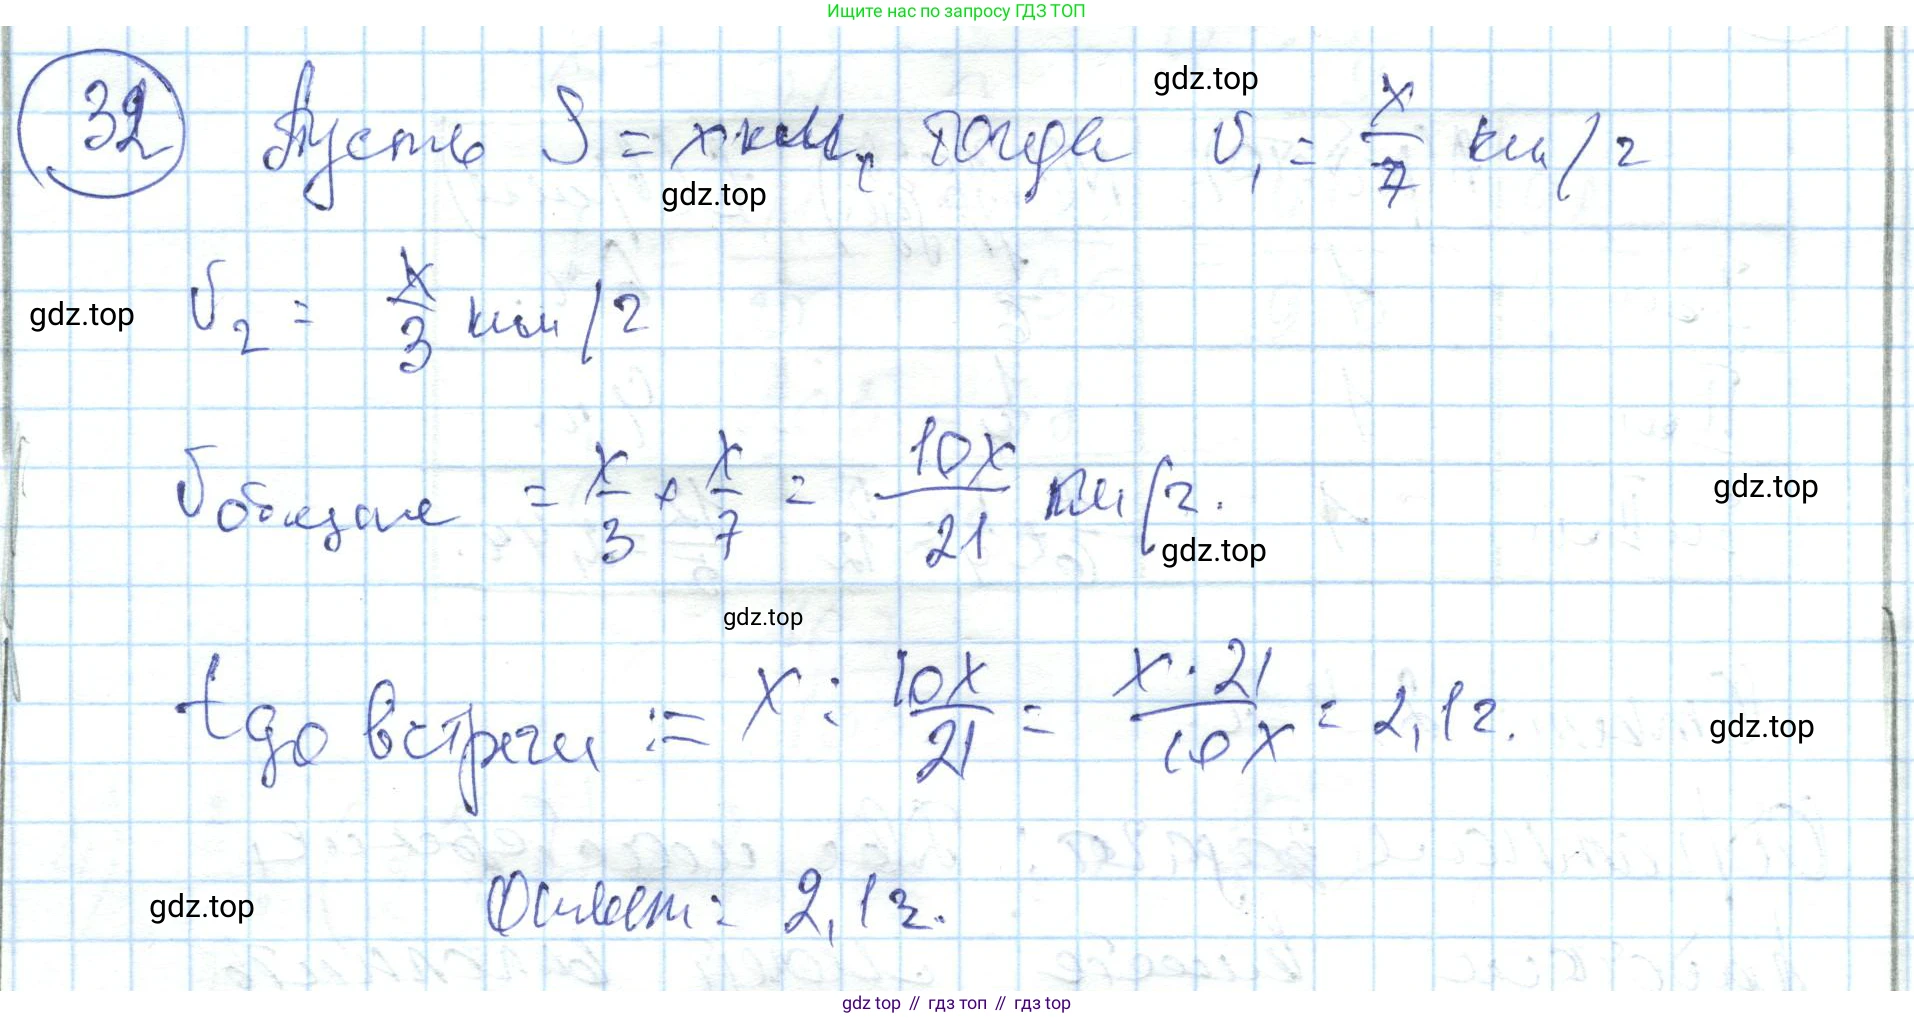 Ищите нас по запросу ГДЗ ТОП
32 Пусть S = x км, тогда v₁ = x/7 км/ч
gdz.top
gdz.top
v₂ = x/3 км/ч
gdz.top
v общая = x/3 + x/7 = 10x/21 км/ч.
gdz.top
gdz.top
gdz.top
t до встречи := x : 10x/21 = x · 21/10x = 2,1 ч.
gdz.top
Ответ: 2,1 ч.
gdz.top
gdz top // гдз топ // гдз top